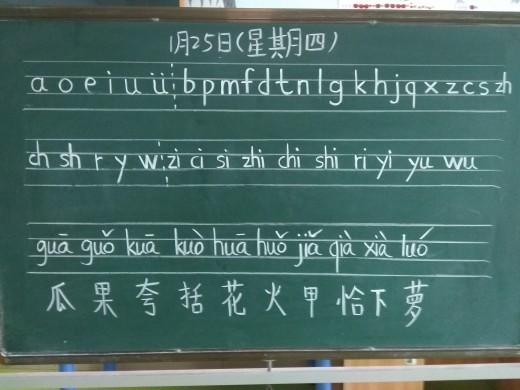 1月25日(星期月四)
a o e i u ü bpmfdtnlgkhjqxzcszh
ch sh r y w zi ci si zhi chi shi ri yi yu wu
guā guǒ kuā kuò huā huǒ jiǎ qià xià luó
瓜 果 夸 括 花 火 甲 恰 下 萝